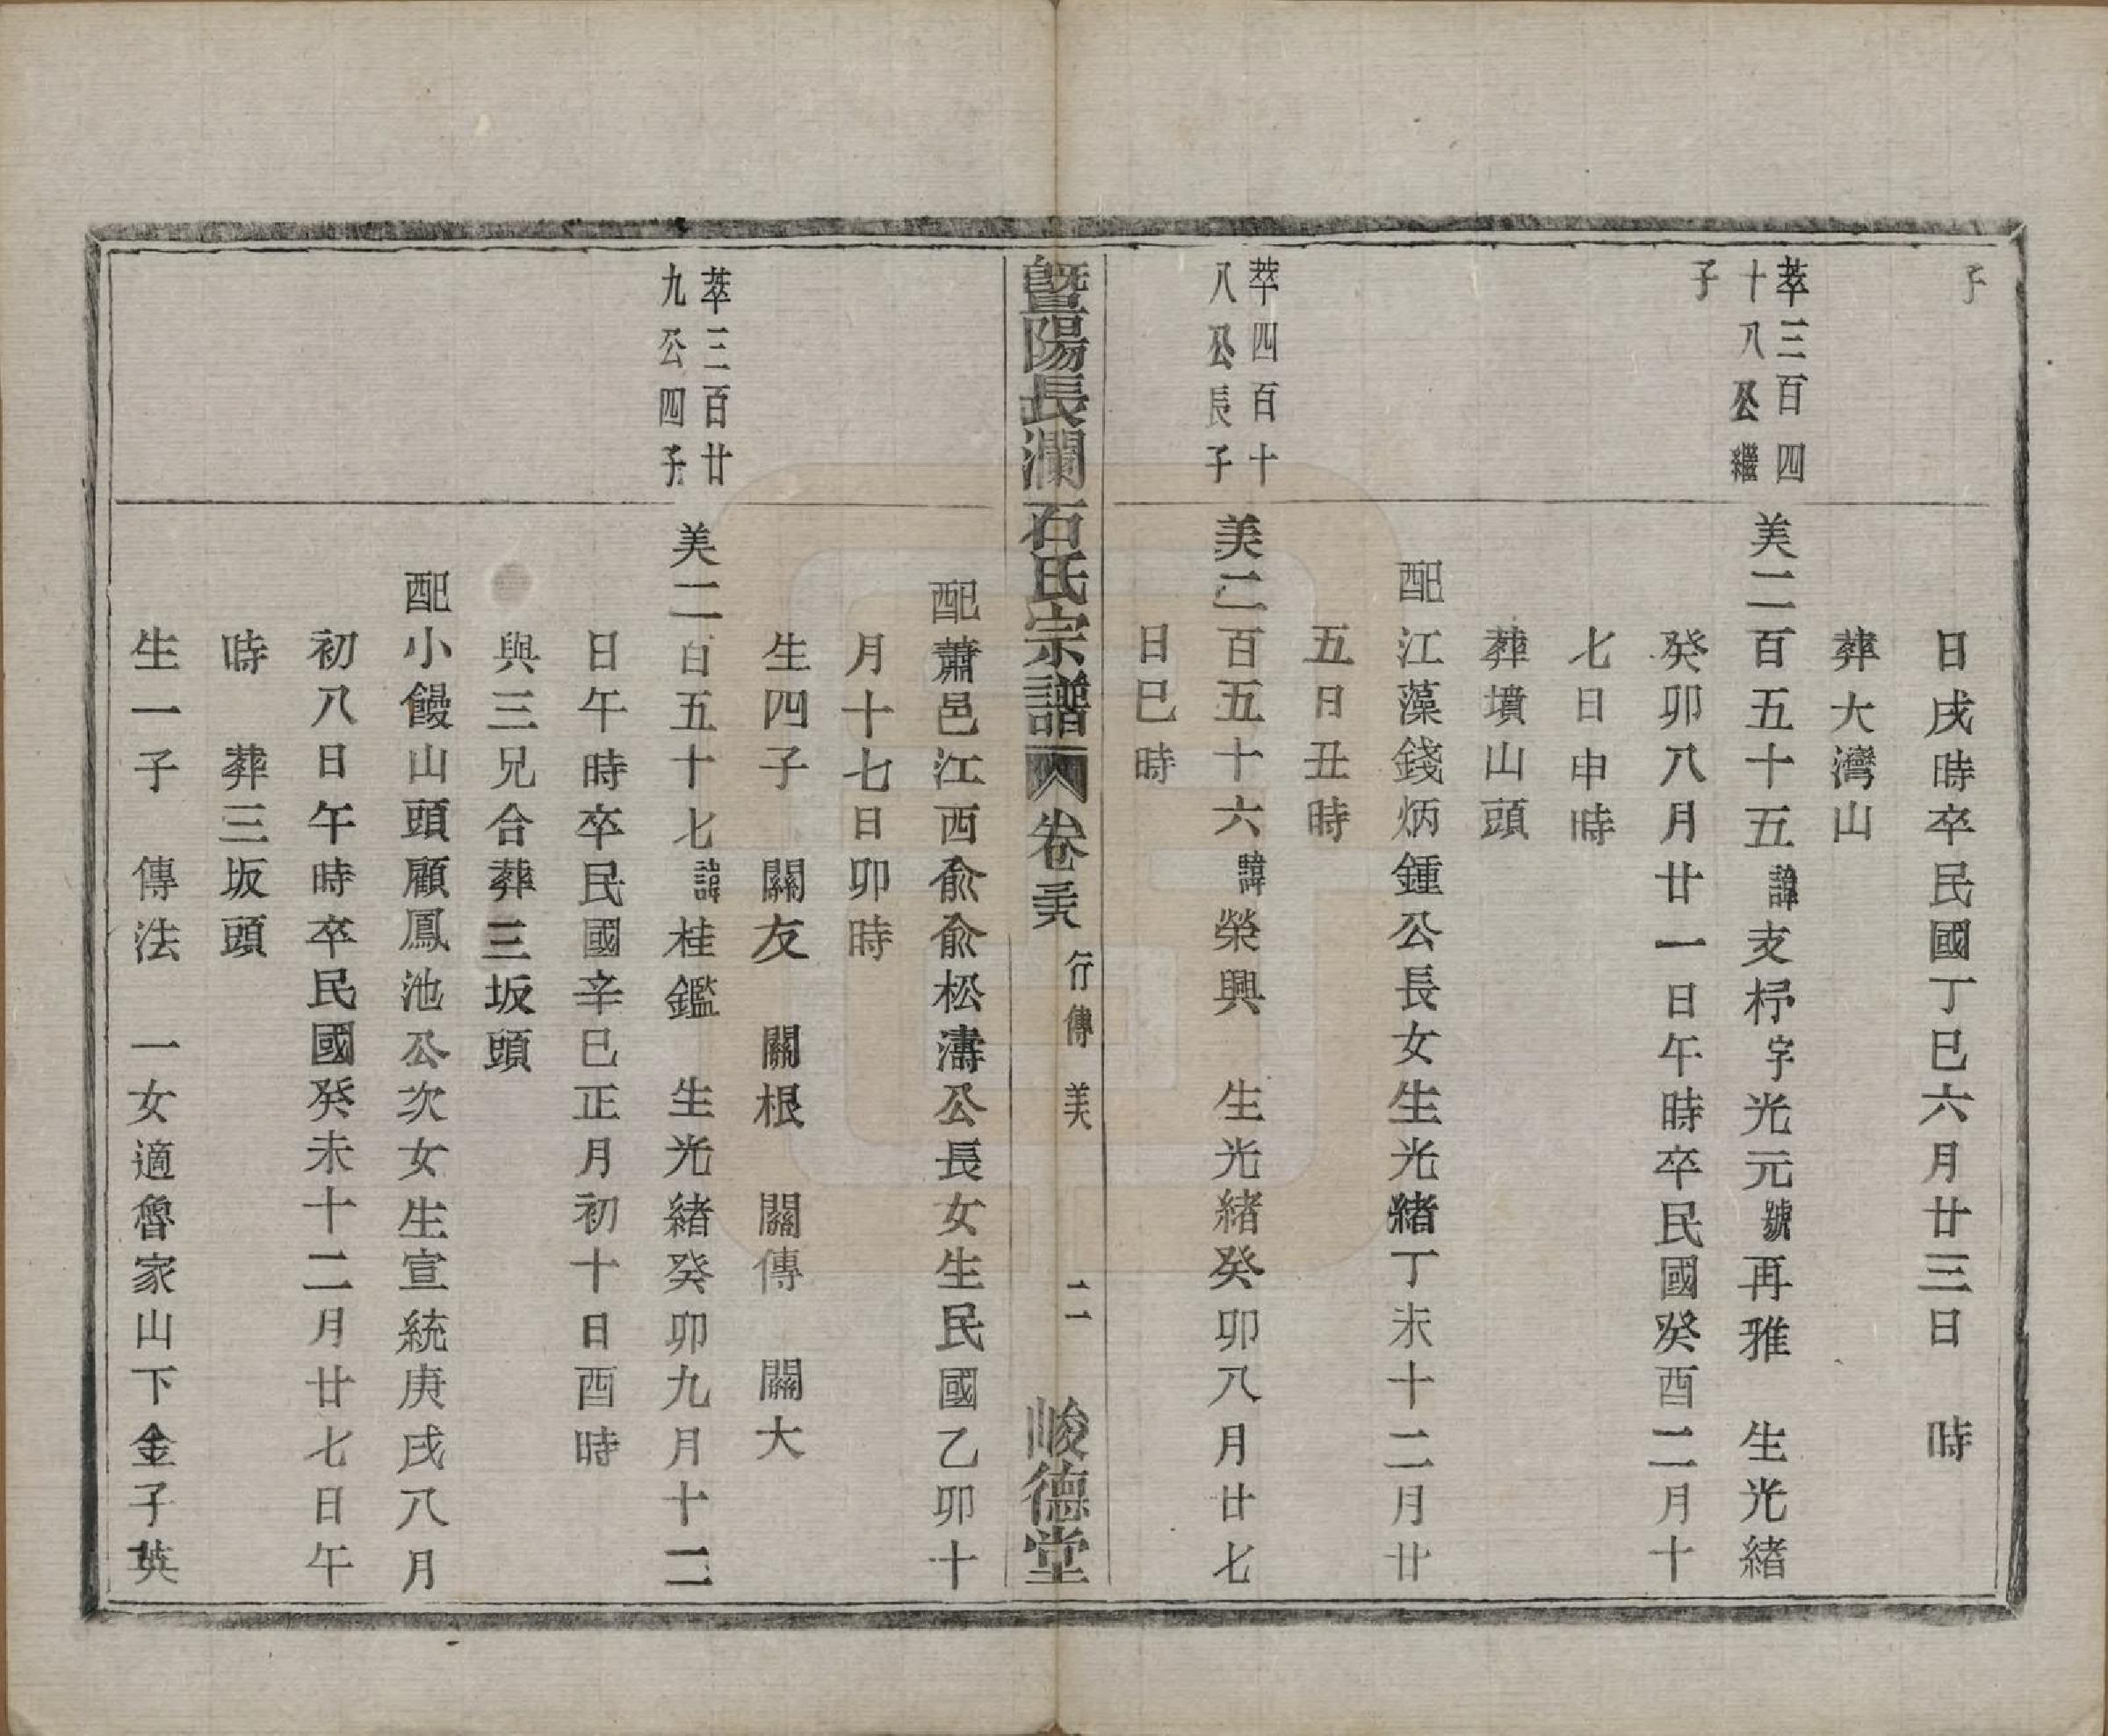 子
日戌時卒民國丁巳六月廿三日　時
葬大灣山
萃三百四
十八公繼
子
美二百五十五諱支杼字光元號再雅　生光緒
癸卯八月廿一日午時卒民國癸酉二月十
七日申時
葬墳山頭
配江藻錢炳鍾公長女生光緒丁未十二月廿
五日丑時
萃四百十
八公長子
美二百五十六諱榮興　生光緒癸卯八月廿七
日巳時
暨陽長瀾石氏宗譜　卷　行傳　美　二　峻德堂
配蕭邑江西俞俞松濤公長女生民國乙卯十
月十七日卯時
生四子　關友　關根　關傳　關大
萃三百廿
九公四子
美二百五十七諱桂鑑　生光緒癸卯九月十二
日午時卒民國辛巳正月初十日酉時
與三兄合葬三坂頭
配小饅山頭顧鳳池公次女生宣統庚戌八月
初八日午時卒民國癸未十二月廿七日午
時　葬三坂頭
生一子　傳法　一女適魯家山下金子英